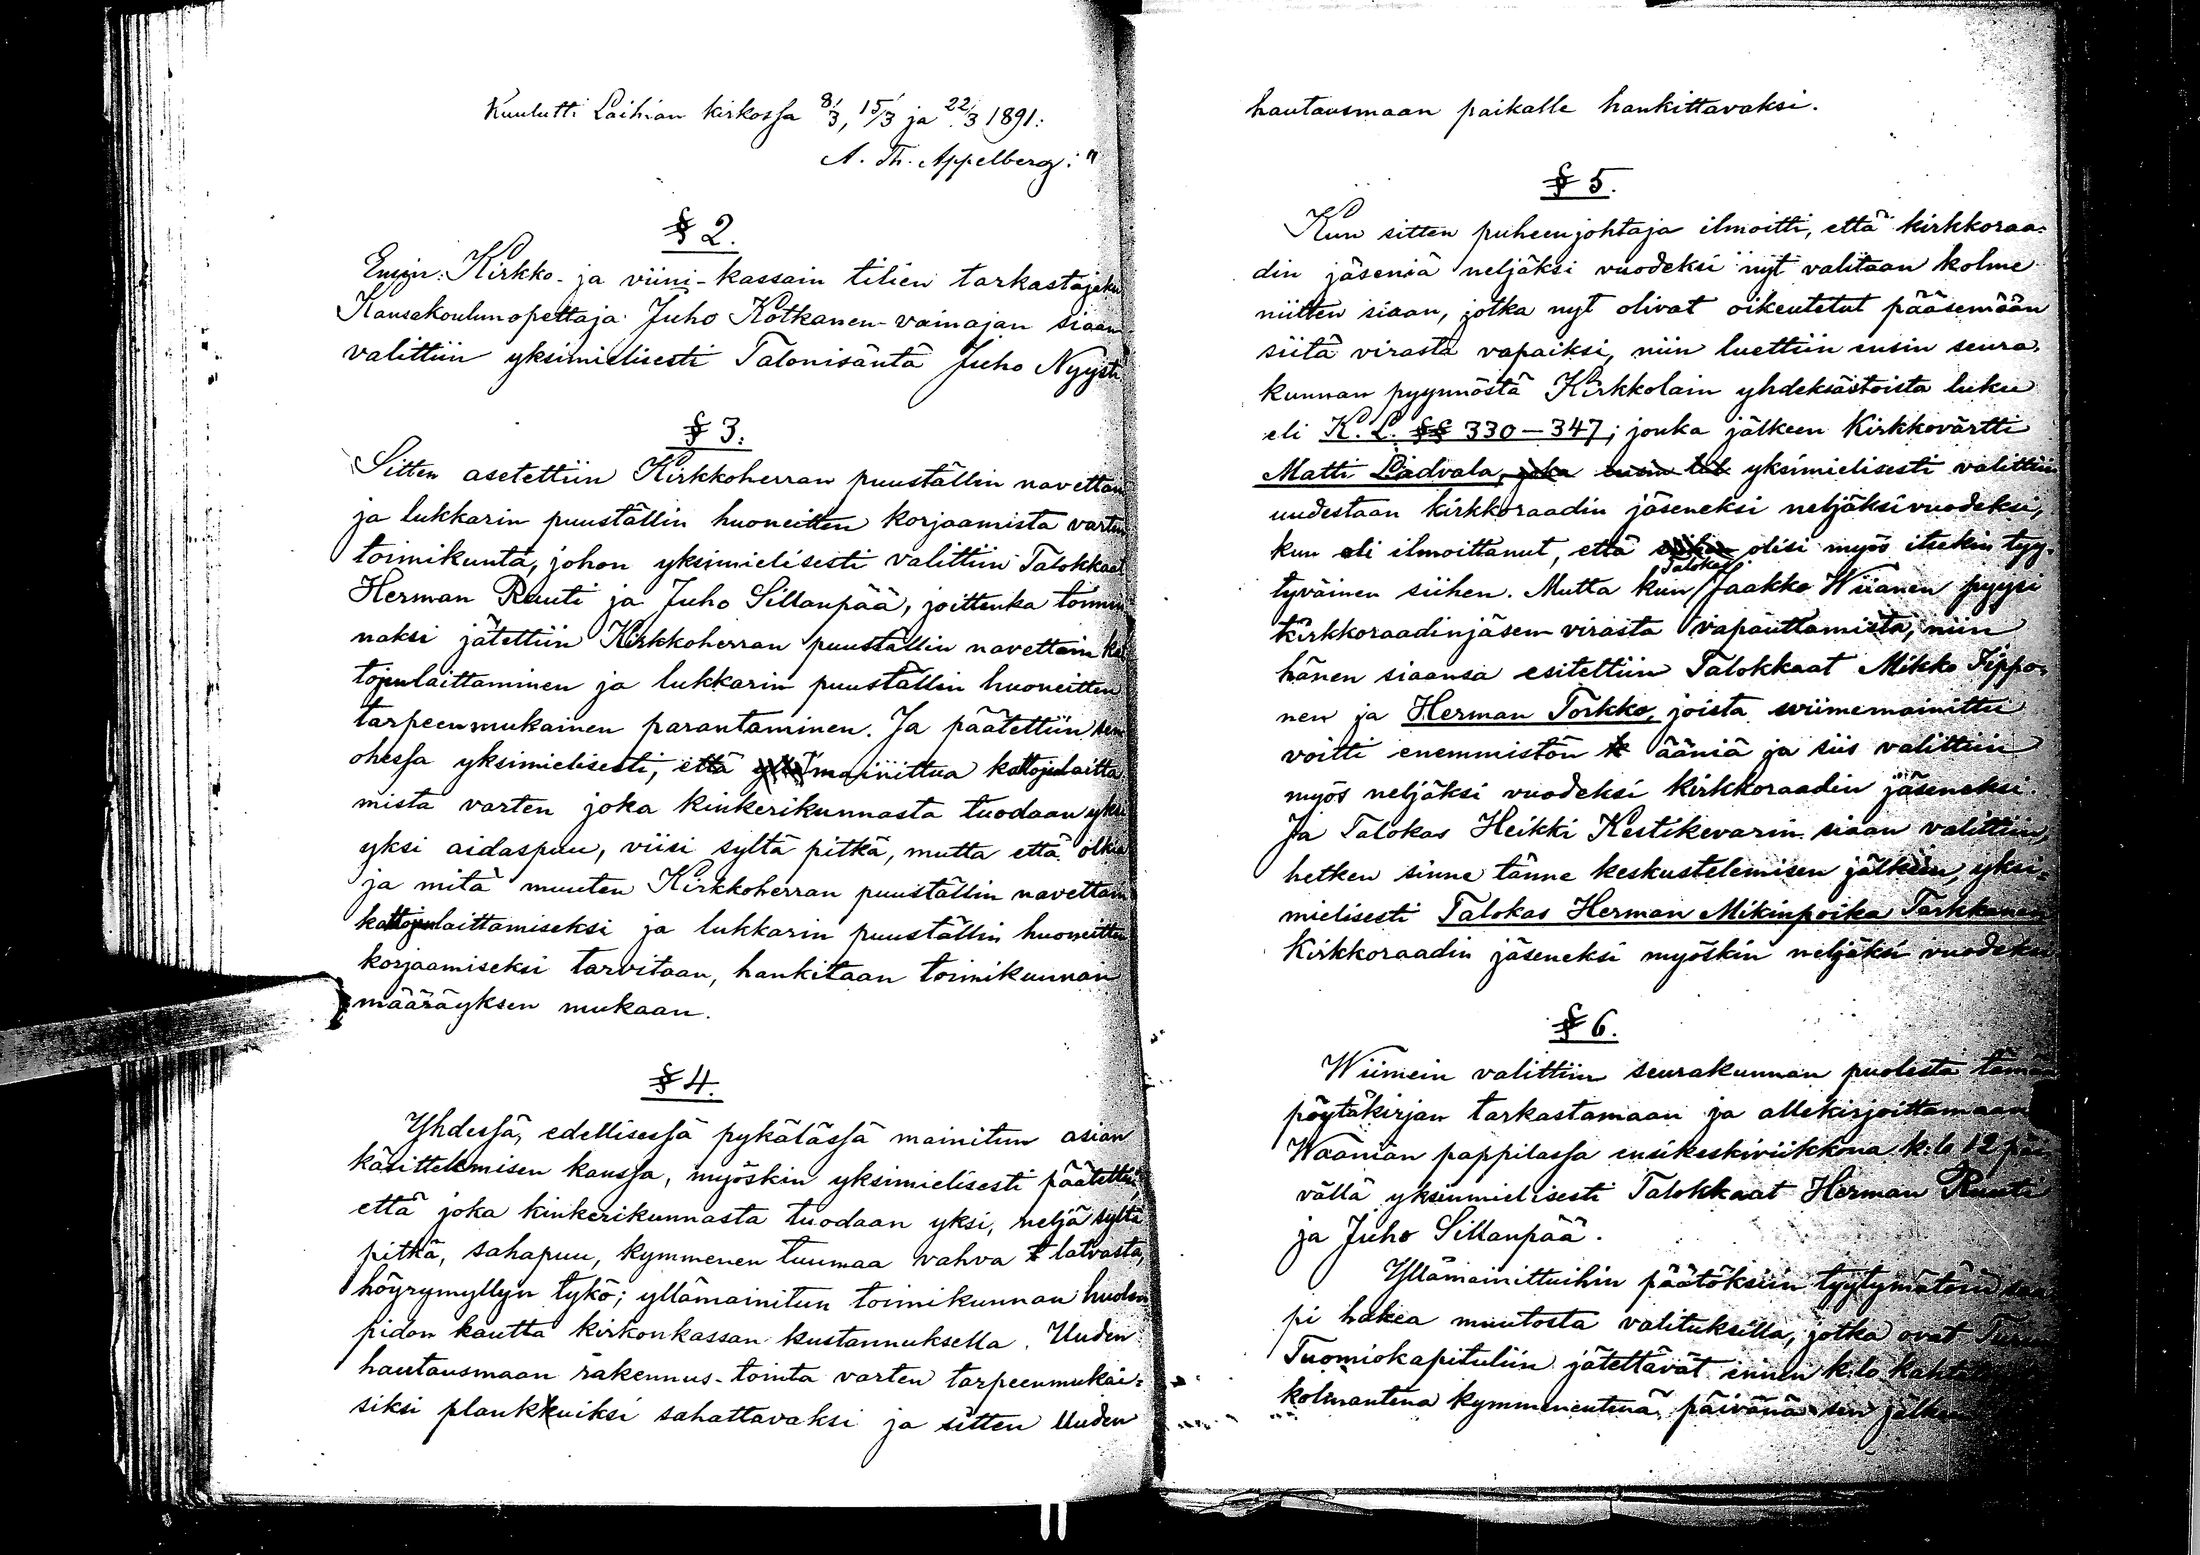 Kuulutti Laihian kirkossa 8/3, 15/3 ja 22/3 1891:
A. Th. Appelberg:"
§ 2.
Ensin: Kirkko- ja viini-kassain tilien tarkastajaksi
Kansakoulunopettaja Juho Kotkanen-vainajan siaan
valittiin yksimielisesti Talonisäntä Juho Nyysti
§ 3.
Sitten asetettiin Kirkkoherran puuställin navettain
ja lukkarin puuställin huoneitten korjaamista varten
toimikunta, johon yksimielisesti valittiin Talokkaat
Herman Ruuti ja Juho Sillanpää, joittenka toimin
naksi jätettiin Kirkkoherran puuställin navettain kat
tojenlaittaminen ja lukkarin puuställin huoneitten
tarpeenmukainen parantaminen. Ja päätettiin sen
ohessa yksimielisesti, että mainittua kattojenlaitta
mista varten joka kinkerikunnasta tuodaan yksi
yksi aidaspuu, viisi syltä pitkä, mutta että olkia
ja mitä muuten Kirkkoherran puuställin navettain
kattojenlaittamiseksi ja lukkarin puuställin huoneitten
korjaamiseksi tarvitaan, hankitaan toimikunnan
määräyksen mukaan.
§ 4.
Yhdessä, edellisessä pykälässä mainitun asian
käsittelemisen kanssa, myöskin yksimielisesti päätettiin,
että joka kinkerikunnasta tuodaan yksi, neljä syltä
pitkä, sahapuu, kymmenen tuumaa vahva latvasta,
höyrymyllyn tykö; yllämainitun toimikunnan huolen
pidon kautta kirkonkassan kustannuksella. Uuden
hautausmaan rakennus-tointa varten tarpeenmukai-
siksi plankkuiksi sahattavaksi ja sitten Uuden
hautausmaan paikalle hankittavaksi.
§ 5.
Kun sitten puheenjohtaja ilmoitti, että kirkkoraa-
din jäseniä neljäksi vuodeksi nyt valitaan kolme
niitten siaan, jotka nyt olivat oikeutetut pääsemään
siitä virasta vapaiksi, niin luettiin ensin seura-
kunnan pyynnöstä Kirkkolain yhdeksästoista luku
eli K. L. §§ 330-347; jonka jälkeen Kirkkovärtti
Matti Ladvala, joka ensin tul yksimielisesti valittiin
uudestaan kirkkoraadin jäseneksi neljäksi vuodeksi,
kun oli ilmoittanut, että olisi myös itsekin tyy-
tyväinen siihen. Mutta kun Talokas Jaakko Wiianen pyysi
kirkkoraadinjäsen-virasta vapauttamista, niin
hänen siaansa esitettiin Talokkaat Mikko Tippo-
nen ja Herman Torkko, joista wiimemainittu
voitti enemmistön ääniä ja siis valittiin
myös neljäksi vuodeksi kirkkoraadin jäseneksi.
Ja Talokas Heikki Kestikevarin siaan valittiin,
hetken sinne tänne keskustelemisen jälkeen, yksi-
mielisesti Talokas Herman Mikinpoika Tarkkanen
Kirkkoraadin jäseneksi myöskin neljäksi vuodeksi
§ 6.
Wiimein valittiin seurakunnan puolesta tämän
pöytäkirjan tarkastamaan ja allekirjoittamaan
Wäänian pappilassa ensikeskiviikkona k:lo 12 päi-
vällä yksinmielisesti Talokkaat Herman Ruuti
ja Juho Sillanpää.
Yllämainittuihin päätöksiin tyytymätön saa
pi hakea muutosta valituksilla, jotka ovat Turun
Tuomiokapituliin jätettävät ennen k:lo
kolmantena kymmenentenä päivänä sen jälkeen